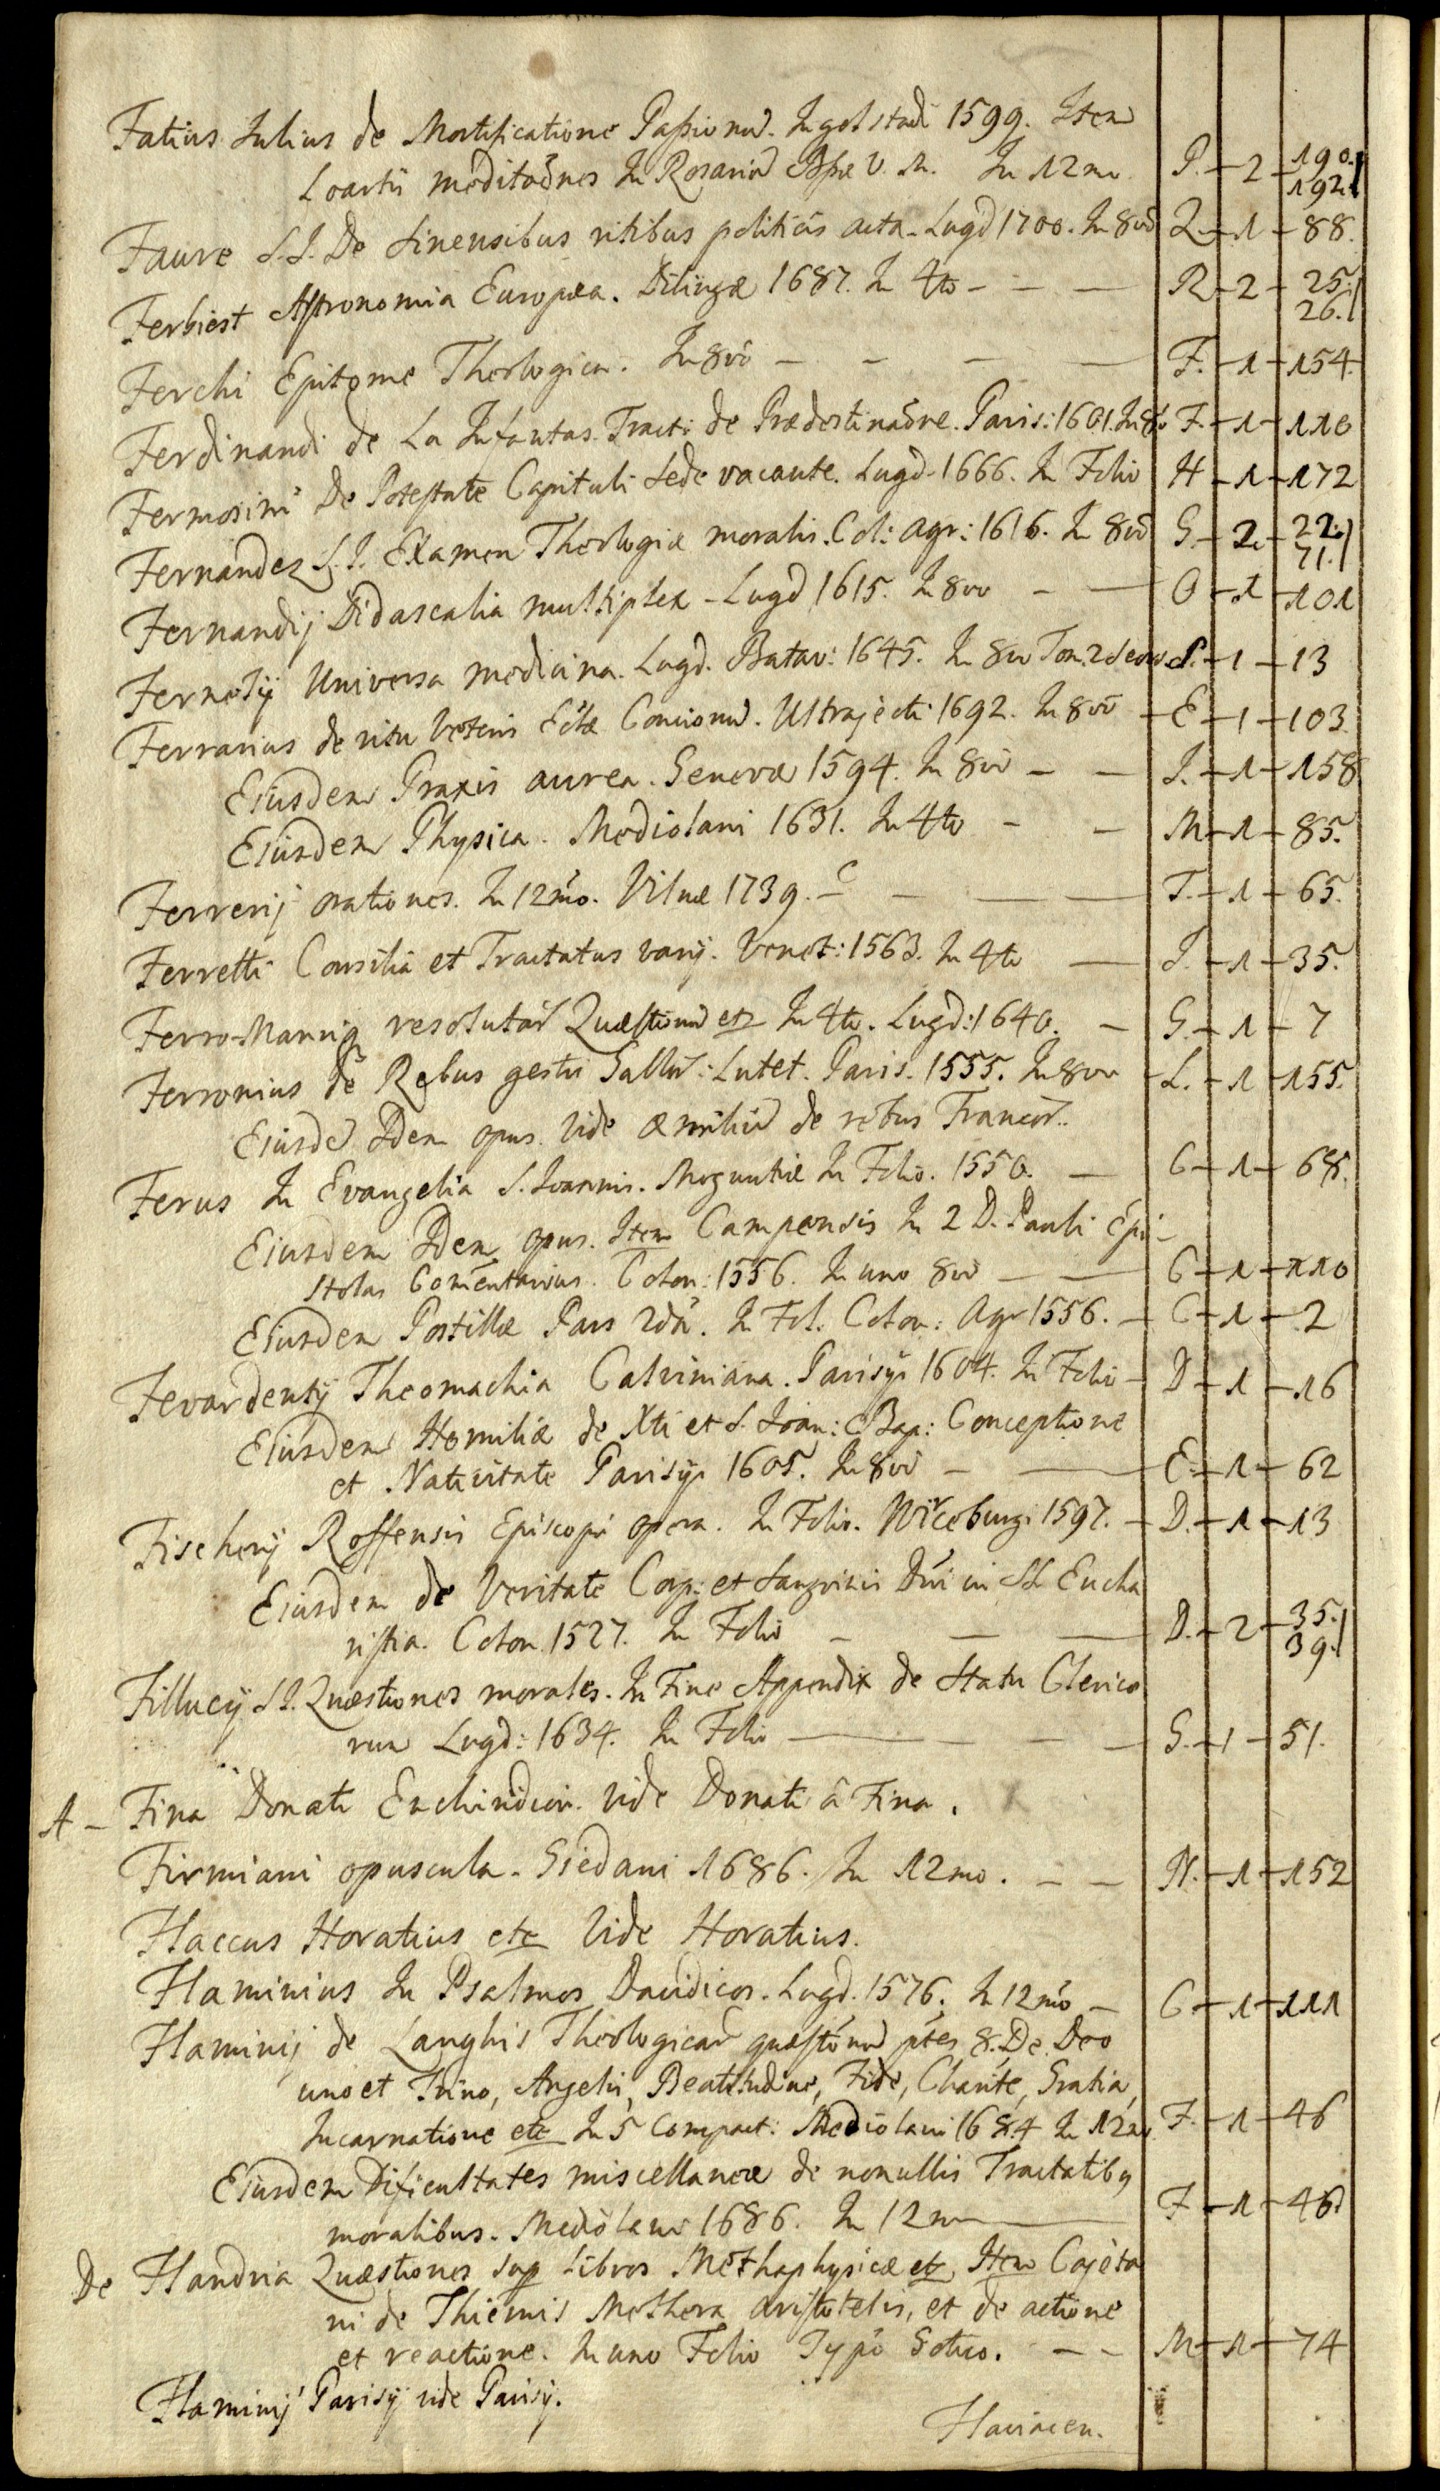 Fatius Julius de Mortificatione Passionū. Ingolstadi 1599. Item
Loartii meditaōnes In Rosariū Bssæ V. M. In 12mo. P. – 2 – 190. 192.
Faure S.J. De Sinensibus ritibus politicis acta. Lugd 1700. In 8vō Q. – 1 – 88.
Ferbiest Astronomia Europæa. Dilingæ 1687. In 4to – – – R – 2 – 25. 26.
Ferchi Epitome Theologica. In 8vō – – – – F. – 1 – 154.
Ferdinandi de La Infantas. Tract: de Prædestinaōne. Paris: 1601. In 8ō F. – 1 – 110
Fermosini De Potestate Capituli Sede vacante. Lugd. 1666. In Folio H – 1 – 172
Fernandez S.J. Examen Theologiæ moralis. Col: Agr: 1616. In 8vō G. – 2. – 22. 71.
Fernandij Didascalia multiplex – Lugd 1615. In 8vo – – O – 1 – 101
Fernelij Universa medicina. Lugd. Batav: 1645. In 8vo Tom. 2 S. – 1 – 13
Ferrarius de ritu Veteris Eclæ Concionū. Ultrajecti 1692. In 8vō – E – 1 – 103.
Eiusdem Praxis aurea. Genevæ 1594. In 8vō – – J. – 1 – 158
Eiusdem Physica. Mediolani 1631. In 4to – – M – 1 – 85.
Ferrerij orationes. In 12mo. Vilnæ 1739. – – – – T. – 1 – 65.
Ferretti Consilia et Tractatus varij. Venet: 1563. In 4to – J. – 1 – 35.
Ferro-Manriq resolutaȓ Quæstionū etc In 4to. Lugd: 1640. – G. – 1 – 7
Ferronius de Rebus gestis Galloȓ: Lutet. Paris. 1555. In 8vo – L. – 1 – 155.
Eiusdē Idem opus. Vide Æmiliū de rebus Francoȓ.
Ferus In Evangelia S. Joannis. Moguntiæ In Folio. 1550. – C – 1 – 68.
Eiusdem Idem opus. Item Campensis In 2 D. Pauli Epi-
stolas Comēntarius. Colon: 1556. In uno 8vō – – C – 1 – 110
Eiusdem Postillæ Pars 2dā. In Fol. Colon: Agr 1556. – C – 1 – 2
Fevardentij Theomachia Calviniana. Parisijs 1604. In Folio – D – 1 – 16
Eiusdem Homiliæ de Xti et S. Joan: Bap: Conceptione
et Nativitate Parisijs 1605. In 8vō – – E – 1 – 62
Fischerij Roffensis Episcopi opera. In Folio. Wirceburgi 1597. – D. – 1 – 13
Eiusdem de Veritate Corp: et Sanguinis Dni in SS Eucha
ristia. Colon. 1527. In Folio – – – D. – 2 – 35. 39.
Fillucij S.J. Quæstiones morales. In Fine Appendix de Statu Clerico
rum Lugd: 1634. In Folio – – – – G. – 1 – 51.
A – Fina Donati Enchiridion. Vide Donati à Fina.
Firmiani opuscula – Giedani 1686. In 12mo. – – N. – 1 – 152
Flaccus Horatius etc Vide Horatius.
Flaminius In Psalmos Davidicos. Lugd. 1576. In 12mō – C – 1 – 111
Flaminij de Langhis Theologicaȓ quæstionū ptes 8. De Deo
uno et Trino, Angelis, Beatitudine, Fide, Charite, Gratia,
Incarnatione etc In 5 Compact: Mediolani 1684 In 12mo F. – 1 – 46
Eiusdem Dificultates miscellaneæ de nonullis Tractatibq
moralibus. Mediolani 1686. In 12mo – F – 1 – 46.
De Flandria Quæstiones sup Libros Methaphysicæ etc Item Cajeta
ni de Thienis Methora Aristotelis, et de actione
et reactione. In uno Folio Typo Gotico. – – M – 1 – 74
Flaminij Parisij vide Parisij.
Flaviacen.